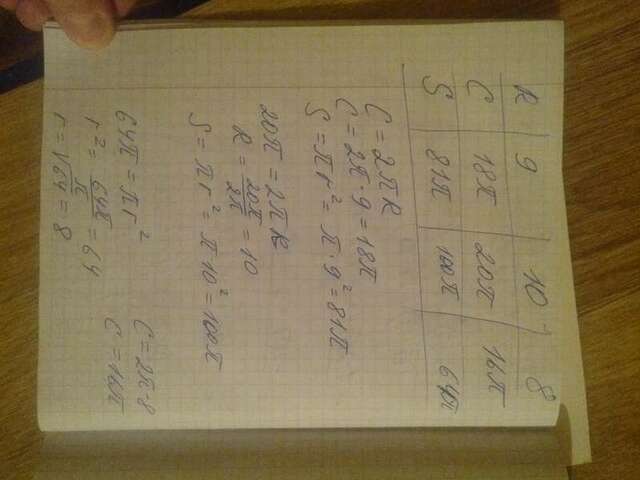 R | 9 | 10 | 8
C | 18π | 20π | 16π
S | 81π | 100π | 64π
C = 2πR
C = 2π·9 = 18π
S = πr² = π·9² = 81π
20π = 2πR
R = 20π/2π = 10
S = πr² = π·10² = 100π
64π = πr²
r² = 64π/π = 64
r = √64 = 8
C = 2π·8
C = 16π